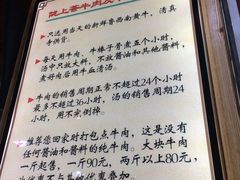 陇上荟牛肉
只选用当天的新鲜鲁西南黄牛,清真
寺供货。
每天用牛肉、牛棒子骨煮五个小时,
汤中只放大料,不放酱油和其他酱料,
煮好后用牛血清汤。
牛肉的销售周期正常不超过24个小时
最多不超过36小时,汤的销售周期24
小时,用不完倒掉。
推荐您回家时打包点牛肉,这是没有
任何酱油和酱料的纯牛肉。大块牛肉
一斤起售,一斤90元,两斤以上80元,